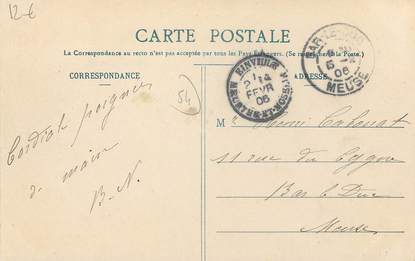 12 €
CARTE POSTALE
La Correspondance au recto n'est pas acceptée par tous les Pays Etrangers. (Se renseigner à la Poste.)
CORRESPONDANCE
ADRESSE
54
EINVILLE
2
FEVR
06
MEURTHE-ET-MOSELLE
BAR-LE-DUC
06
MEUSE
Cordiale poignée
de main
B. N.
M
11 rue du
Bar le Duc
Meuse